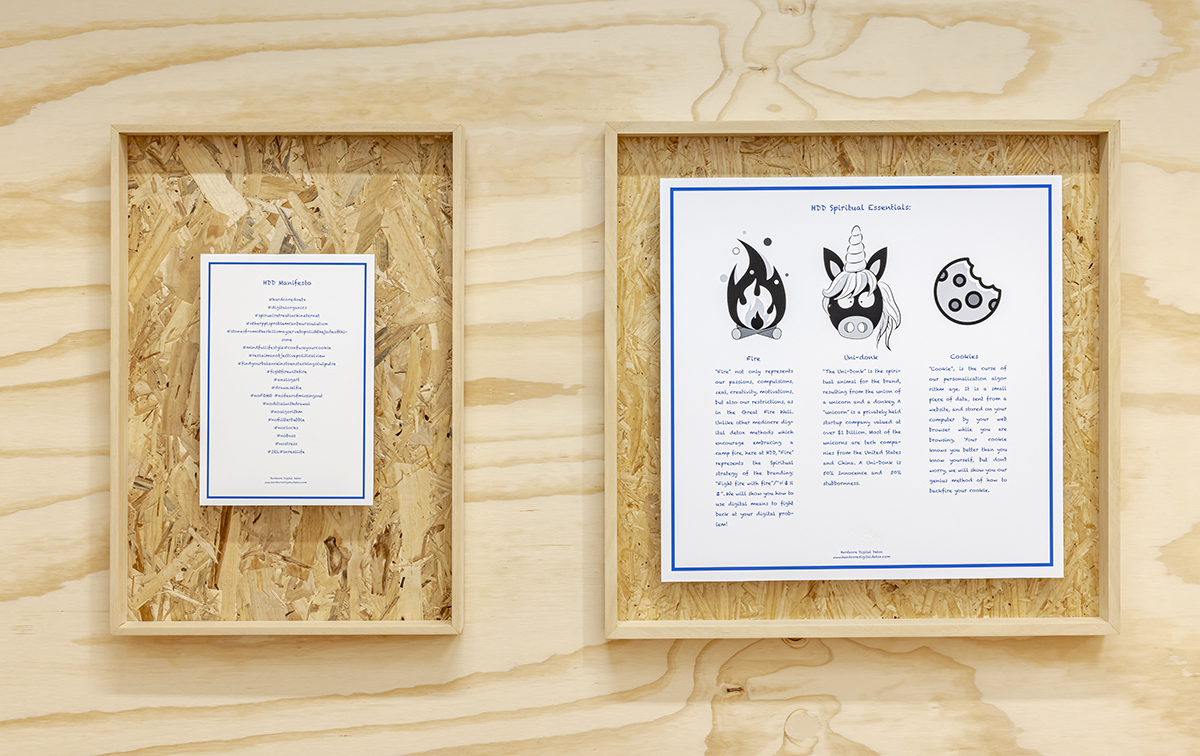 HDD Manifesto
#hardcoredata
#digitalorganics
#mindfullifestyle #confuseyourcookie
#reclaimanobjectivepoliticalview
#fightfirewithfire
#analogart
#drawaselfie
#noFOMO #nofearofmissingout
#nodigitalwithdrawal
#noalgorithm
#nofilterbubble
#noclocks
#noboss
#nostress
#IRL #inreallife
Hardcore Digital Detox
www.hardcoredigitaldetox.com
HDD Spiritual Essentials:
Fire
"Fire" not only represents
our passions, compulsions,
zeal, creativity, motivations,
but also our restrictions, as
in the Great Fire Wall.
Unlike other mediocre dig-
ital detox methods which
encourage embracing a
camp fire, here at HDD, "Fire"
represents the Spiritual
strategy of the branding:
"Fight fire with fire"/"
". We will show you how to
use digital means to fight
back at your digital prob-
lem!
Uni-donk
"The Uni-Donk" is the spiri-
tual animal for the brand,
resulting from the union of
a unicorn and a donkey. A
"unicorn" is a privately held
startup company valued at
over $1 billion. Most of the
unicorns are tech compa-
nies from the United States
and China. A Uni-Donk is
50% innocence and 50%
stubbornness.
Cookies
"Cookie", is the curse of
our personalization algo-
rithm age. It is a small
piece of data, sent from a
website, and stored on your
computer by your web
browser while you are
browsing. Your cookie
knows you better than you
know yourself, but don't
worry, we will show you our
genius method of how to
backfire your cookie.
Hardcore Digital Detox
www.hardcoredigitaldetox.com